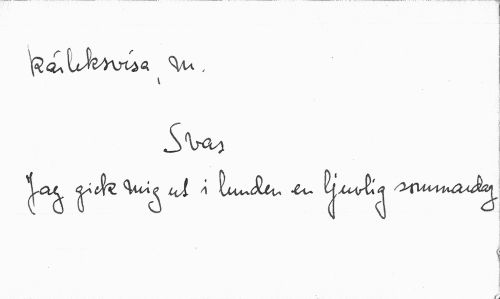 Kärleksvisa, m.
Svas
Jag gick mig ut i lunden en ljuvlig sommardag